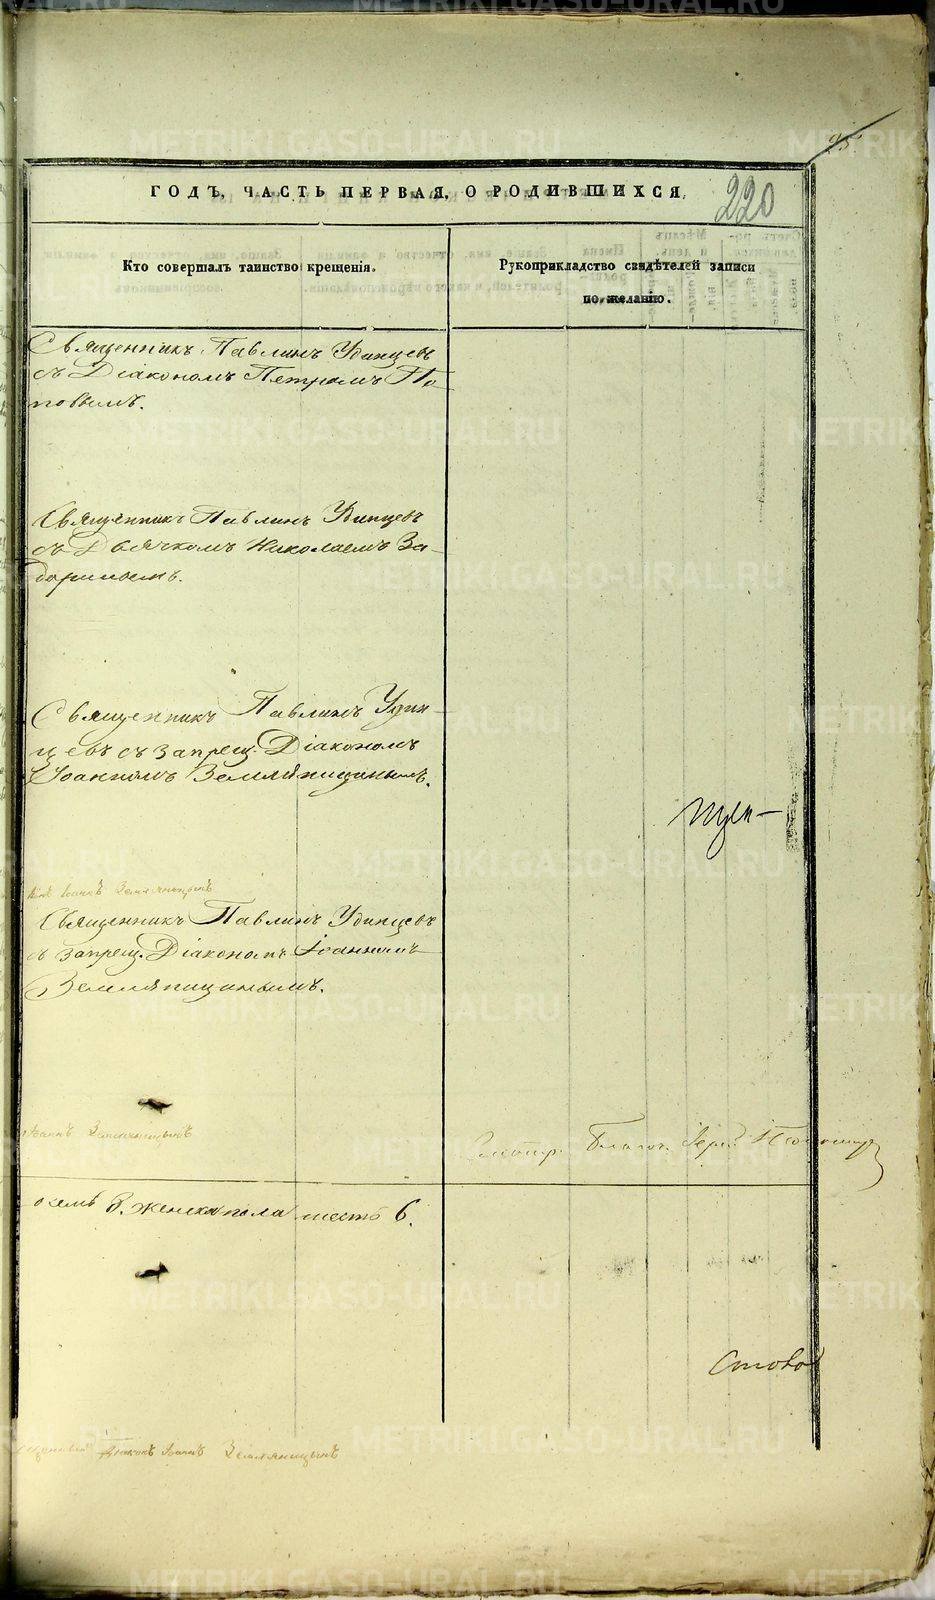 95
ГОДЪ, ЧАСТЬ ПЕРВАЯ, О РОДИВШИХСЯ,
220
Кто совершалъ таинство крещенія.
Рукоприкладство свидѣтелей записи
по желанію.
Священникъ Павлинъ Удинцевъ
съ Діакономъ Петромъ По-
повымъ.
Священникъ Павлинъ Удинцевъ
съ Дьячкомъ Николаемъ За-
Священникъ Павлинъ Удин-
цевъ съ запрещ. Діакономъ
Іоанномъ Земляницинымъ.
Земляницынъ
Священникъ Павлинъ Удинцевъ
съ запрещ. Діакономъ Іоанномъ
Земляницинымъ.
Іоаннъ Земляницынъ
осемь 8. женска пола шесть 6.
Діаконъ Іоаннъ Земляницынъ
METRIKI.GASO-URAL.RU